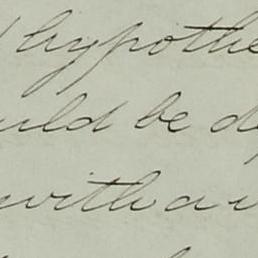 hypothe
ould be d
with a